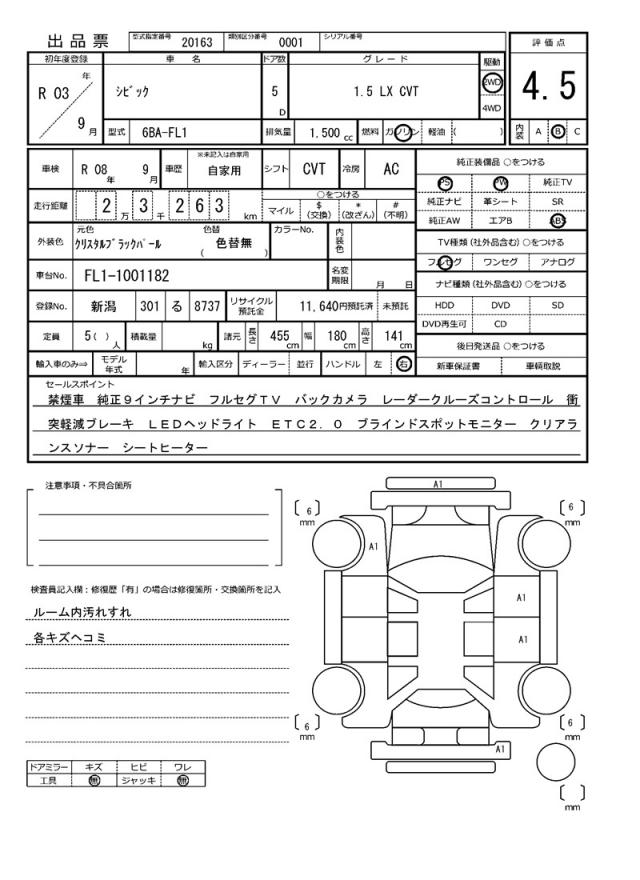 出品票 型式指定番号 20163 類別区分番号 0001 シリアル番号
評価点
4.5
内装 A B C
初年度登録 車名 ドア数 グレード 駆動
R 03 年 9 月 シビック 5 D 1.5 LX CVT 2WD 4WD
型式 6BA-FL1 排気量 1.500 cc 燃料 ガソリン 軽油 ( )
車検 R 08 年 9 月 車歴 ※未記入は自家用 自家用 シフト CVT 冷房 AC
走行距離 2 万 3 千 263 km ○をつける
マイル $ (交換) * (改ざん) # (不明)
外装色 元色 クリスタルブラックパール 色替 ( 色替無 ) カラーNo. 内装色
車台No. FL1-1001182 名変期限 月 日
登録No. 新潟 301 る 8737 リサイクル預託金 11,640円預託済 未預託
定員 5( ) 人 積載量 kg 諸元 長さ 455 cm 幅 180 cm 高さ 141 cm
輸入車のみ⇒ モデル年式 年 輸入区分 ディーラー 並行 ハンドル 左 右
純正装備品 ○をつける
PS PW 純正TV
純正ナビ 革シート SR
純正AW エアB ABS
TV種類 (社外品含む) ○をつける
フルセグ ワンセグ アナログ
ナビ種類 (社外品含む) ○をつける
HDD DVD SD
DVD再生可 CD
後日発送品 ○をつける
新車保証書 車輌取説
セールスポイント
禁煙車 純正9インチナビ フルセグTV バックカメラ レーダークルーズコントロール 衝
突軽減ブレーキ LEDヘッドライト ETC2.0 ブラインドスポットモニター クリアラ
ンスソナー シートヒーター
注意事項・不具合箇所
検査員記入欄：修復歴「有」の場合は修復箇所・交換箇所を記入
ルーム内汚れすれ
各キズヘコミ
ドアミラー キズ ヒビ ワレ
工具 無 ジャッキ 無
A1
6 mm
6 mm
A1
A1
A1
6 mm
6 mm
A1
mm